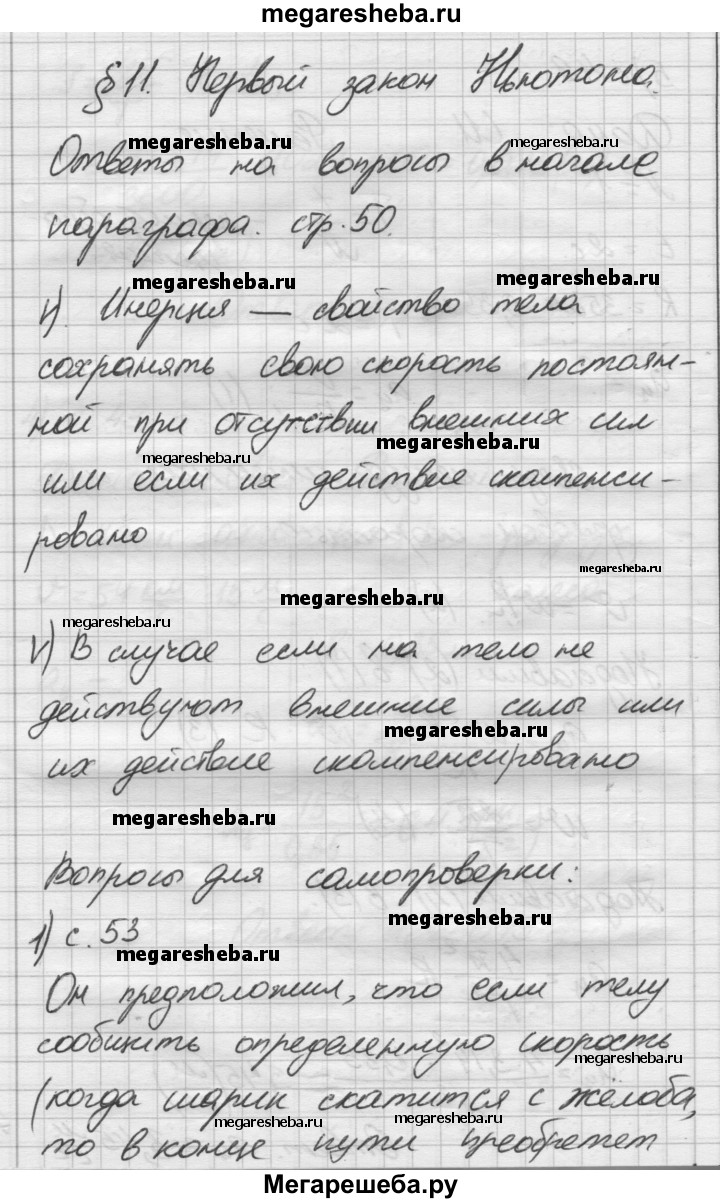 megaresheba.ru
§11. Первый закон Ньютона.
megaresheba.ru megaresheba.ru
Ответы на вопросы в начале
параграфа. стр. 50.
megaresheba.ru megaresheba.ru
Ч). Инерция — свойство тела
сохранять свою скорость постоян-
ной при отсутствии внешних сил
megaresheba.ru megaresheba.ru
или если их действие скомпенси-
ровано
megaresheba.ru
megaresheba.ru
megaresheba.ru
Ч) В случае если на тело не
действуют внешние силы или
megaresheba.ru
их действие скомпенсировано
megaresheba.ru
Вопросы для самопроверки:
megaresheba.ru
1) с. 53
megaresheba.ru
Он предположил, что если телу
сообщить определенную скорость
megaresheba.ru
(когда шарик скатится с желоба,
megaresheba.ru megaresheba.ru
то в конце пути преобретет
Мегарешеба.ру